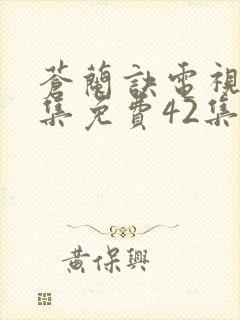 蒼蘭訣電視
集免費42集
黃保興